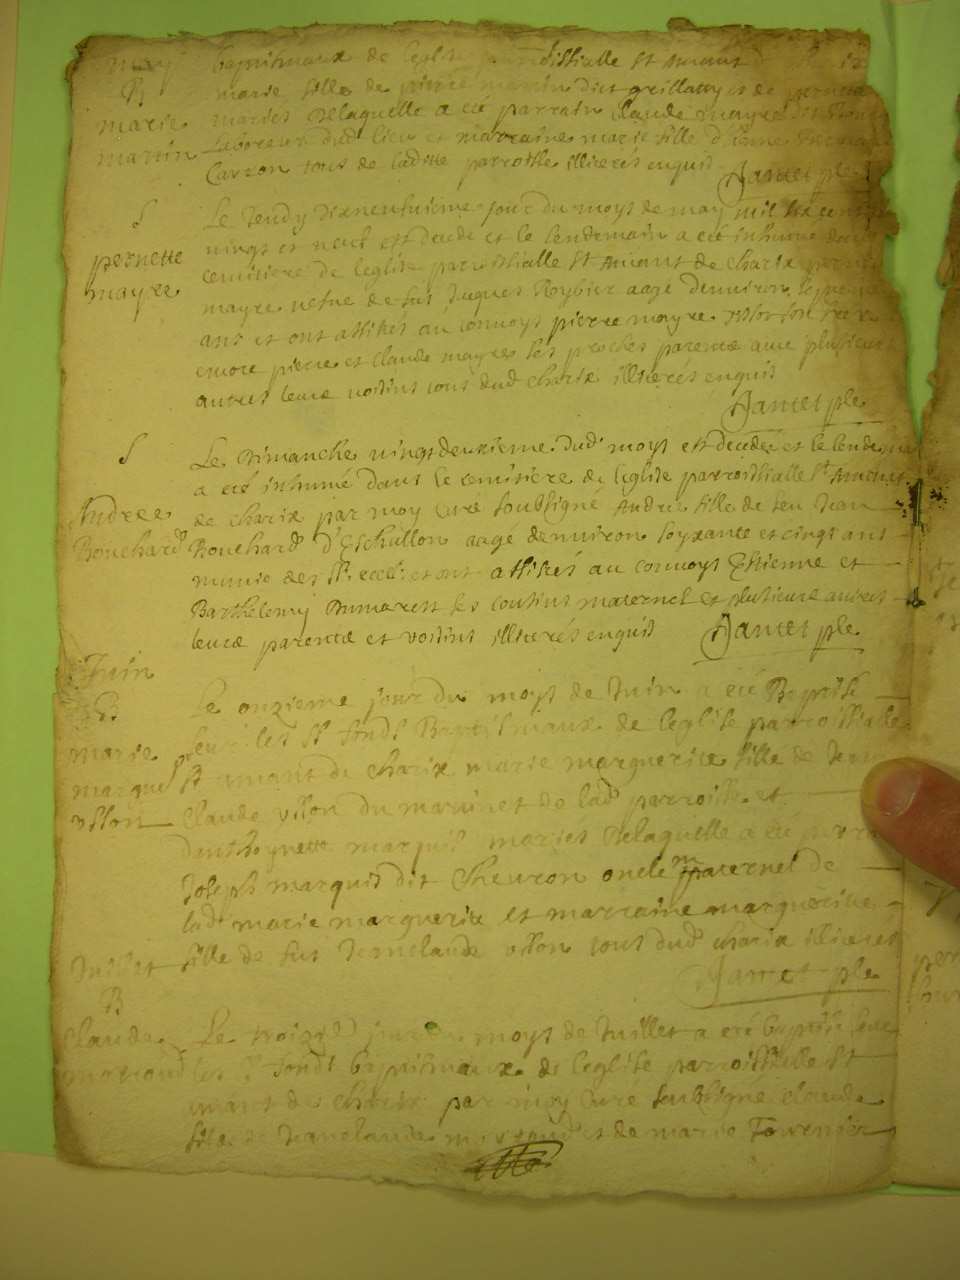 may
B
marie
martin
baptismaux de leglise parroissialle St Amant de Charix
marie fille de pierre martin dict grillatty et de pernette
mariés delaquelle a eté parrain Claude mayre
Laboreur dud. lieu et marraine marie fille d'
Carzon tous de laditte parroisse illiterés enquis
Jantet ptre
S
pernette
mayre
Le Jeudy dixneufuieme jour du moys de may mil six cent
vingt et neuf est decedé et le lendemain a eté inhumé dans
cemitiere de leglise parroissialle St Amant de charix pernette
mayre vefue de fut Jaques Roybier aagé denuiron septante
ans et ont assistés au conuoys pierre mayre son frere
encore pierre et claude mayres ses proches parents auec plusieurs
autres leurs voisins tous dud. charix illiterés enquis
Jantet ptre
S
Andree
Bouchard
Le Dimanche vingtdeuxieme dud. moys est decedée et le lendemain
a eté inhumé dans le cemitiere de leglise parroissialle St Amant
de charix par moy curé soubsigné Andree fille de feu Jean
Bouchard d'Eschallon aagé denuiron soyxante et cinqt ans
munie des Sts. et ont assistés au conuoys Estienne et
Barthelemy Dumarest ses cousins maternels et plusieurs autres
leurs parents et voisins illiterés enquis Jantet ptre
Juin
B
marie
margte
vsson
Le onzieme jour du moys de Juin a eté Baptisé
sur les St fonds Baptismaux de leglise parroissialle
St amant de charix marie marguerite fille de Jean
Claude vsson du martinet de lad. parroisse et
danthoynette marquis mariés delaquelle a eté parrain
Joseph marquis dit Cheuron oncle maternel de
lad. marie marguerite et marraine marguerite
fille de fut Jeanclaude vsson tous dud. charix illiterés
Jantet ptre
Juillet
B
Claude
Le jour du moys de Juillet a eté baptisé sur
les St fonds baptismaux de leglise parroissialle St
amant de charix par moy curé soubsigné claude
fils de Jeanclaude et de marie Fournier